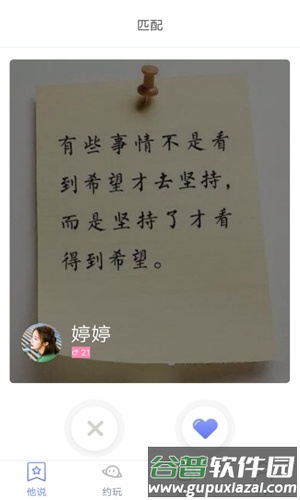 匹配
有些事情不是看
到希望才去坚持，
而是坚持了才看
得到希望。
婷婷
♂ 21
谷普软件园
www.gupuxiazai.com
他说
约玩